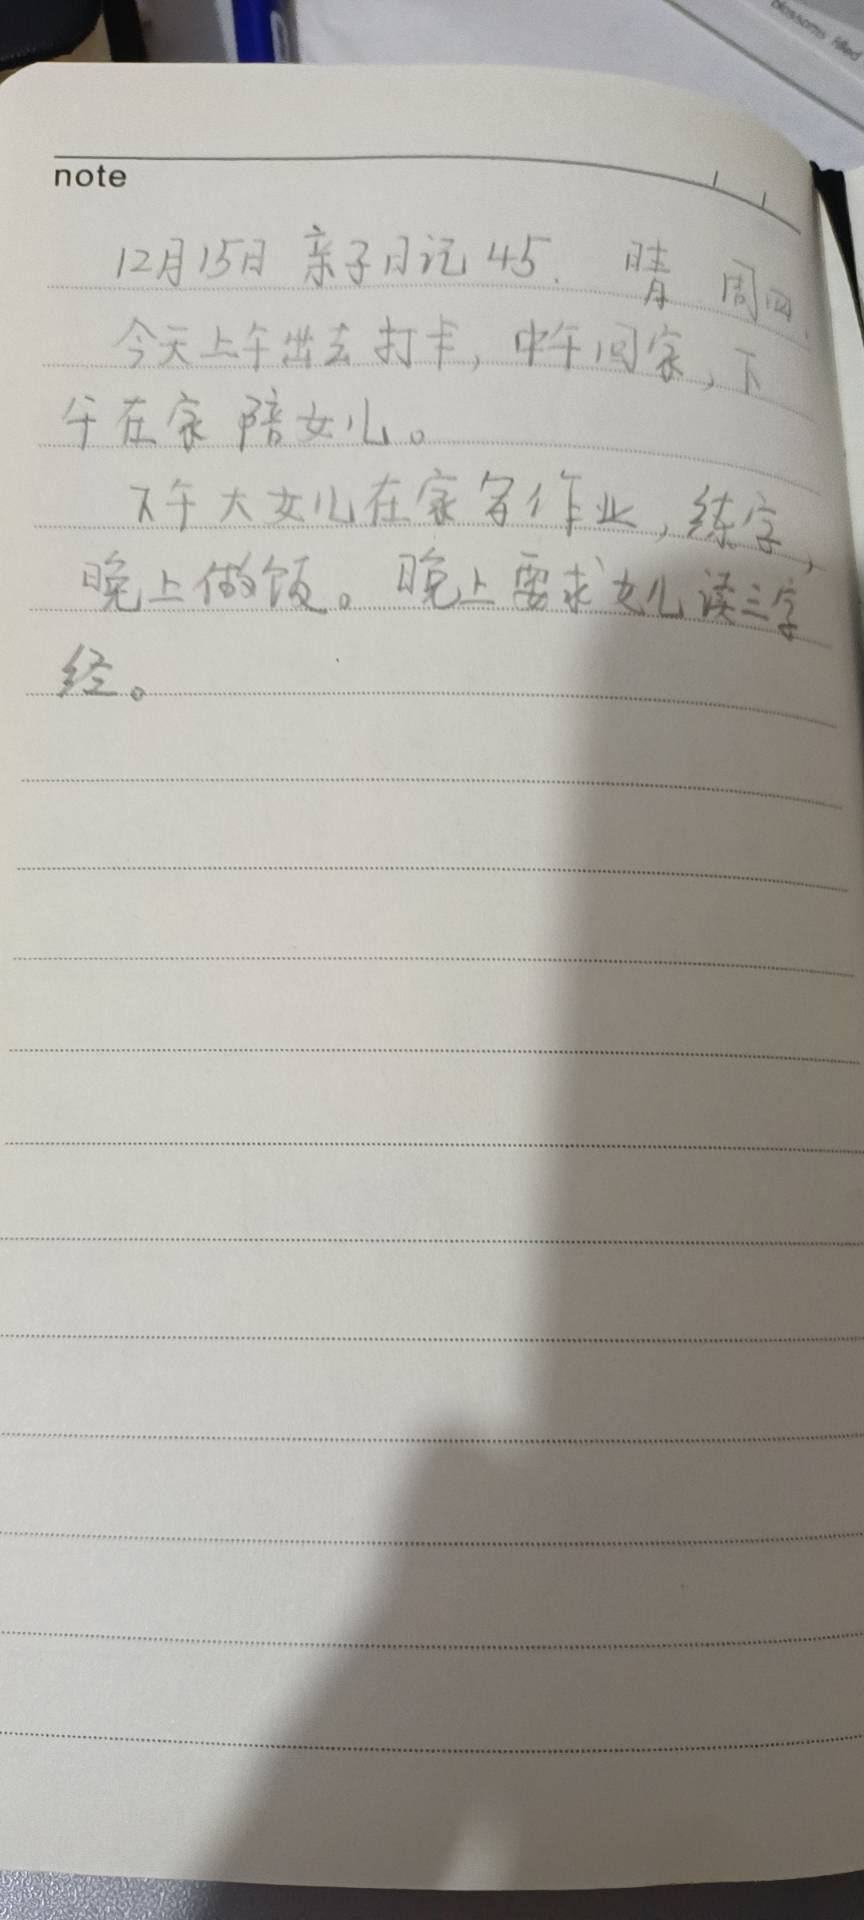 blossoms filled
note
12月15日 亲子日记 45. 晴 周四.
今天上午出去打卡，中午回家，下
午在家陪女儿。
下午大女儿在家写作业，练字，
晚上做饭。晚上要求女儿读三字
经。